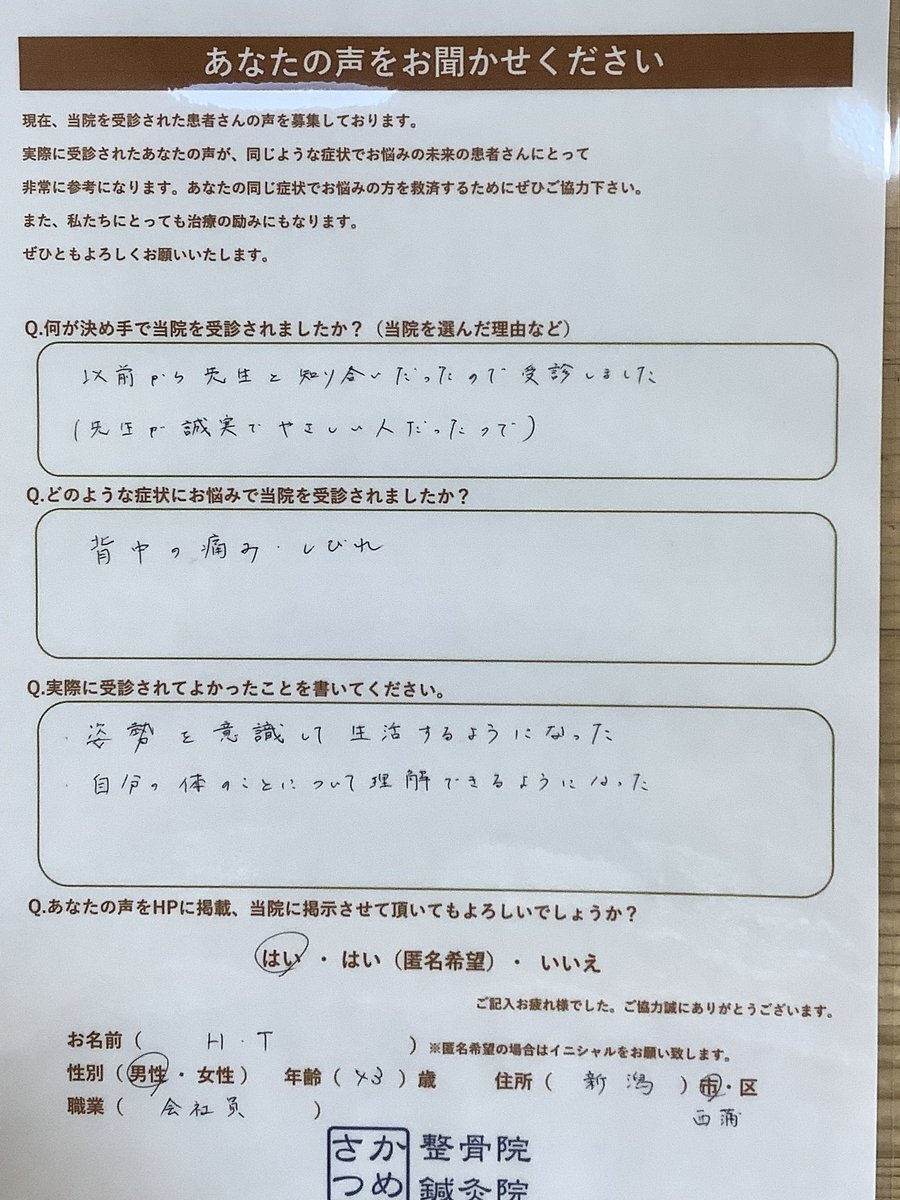 あなたの声をお聞かせください
現在、当院を受診された患者さんの声を募集しております。
実際に受診されたあなたの声が、同じような症状でお悩みの未来の患者さんにとって
非常に参考になります。あなたの同じ症状でお悩みの方を救済するためにぜひご協力下さい。
また、私たちにとっても治療の励みにもなります。
ぜひともよろしくお願いいたします。
Q.何が決め手で当院を受診されましたか？（当院を選んだ理由など）
以前から先生と知り合いだったので受診しました
(先生が誠実でやさしい人だったので)
Q.どのような症状にお悩みで当院を受診されましたか？
背中の痛み・しびれ
Q.実際に受診されてよかったことを書いてください。
・姿勢を意識して生活するようになった
・自分の体のことについて理解できるようになった
Q.あなたの声をHPに掲載、当院に掲示させて頂いてもよろしいでしょうか？
はい ・ はい（匿名希望）・ いいえ
ご記入お疲れ様でした。ご協力誠にありがとうございます。
お名前（ H・T ）※匿名希望の場合はイニシャルをお願い致します。
性別（男性・女性） 年齢（43）歳 住所（新潟）市・区
西蒲
職業（会社員）
さかつめ 整骨院
鍼灸院